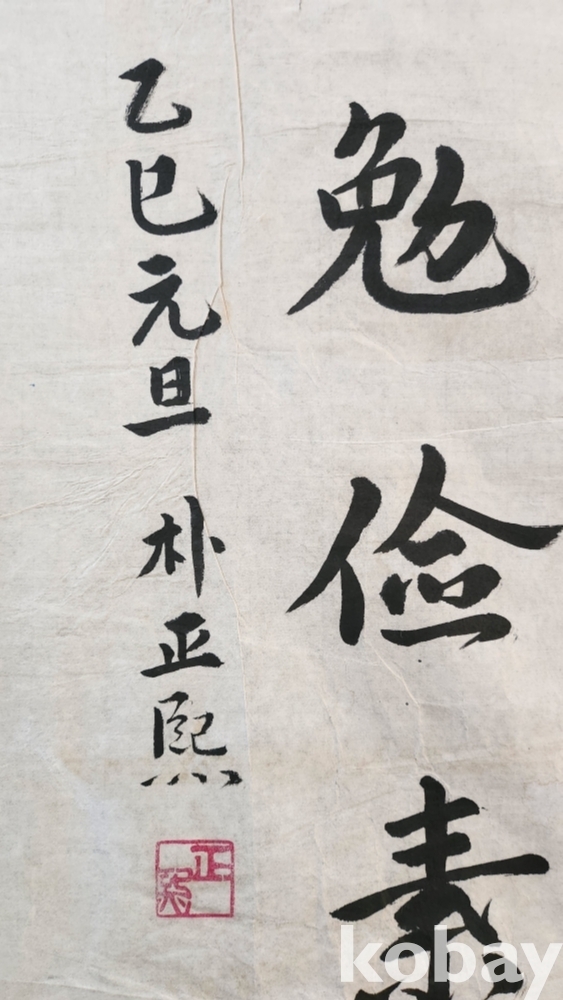 勉儉素
乙巳元旦 朴正熙
正熙
kobay